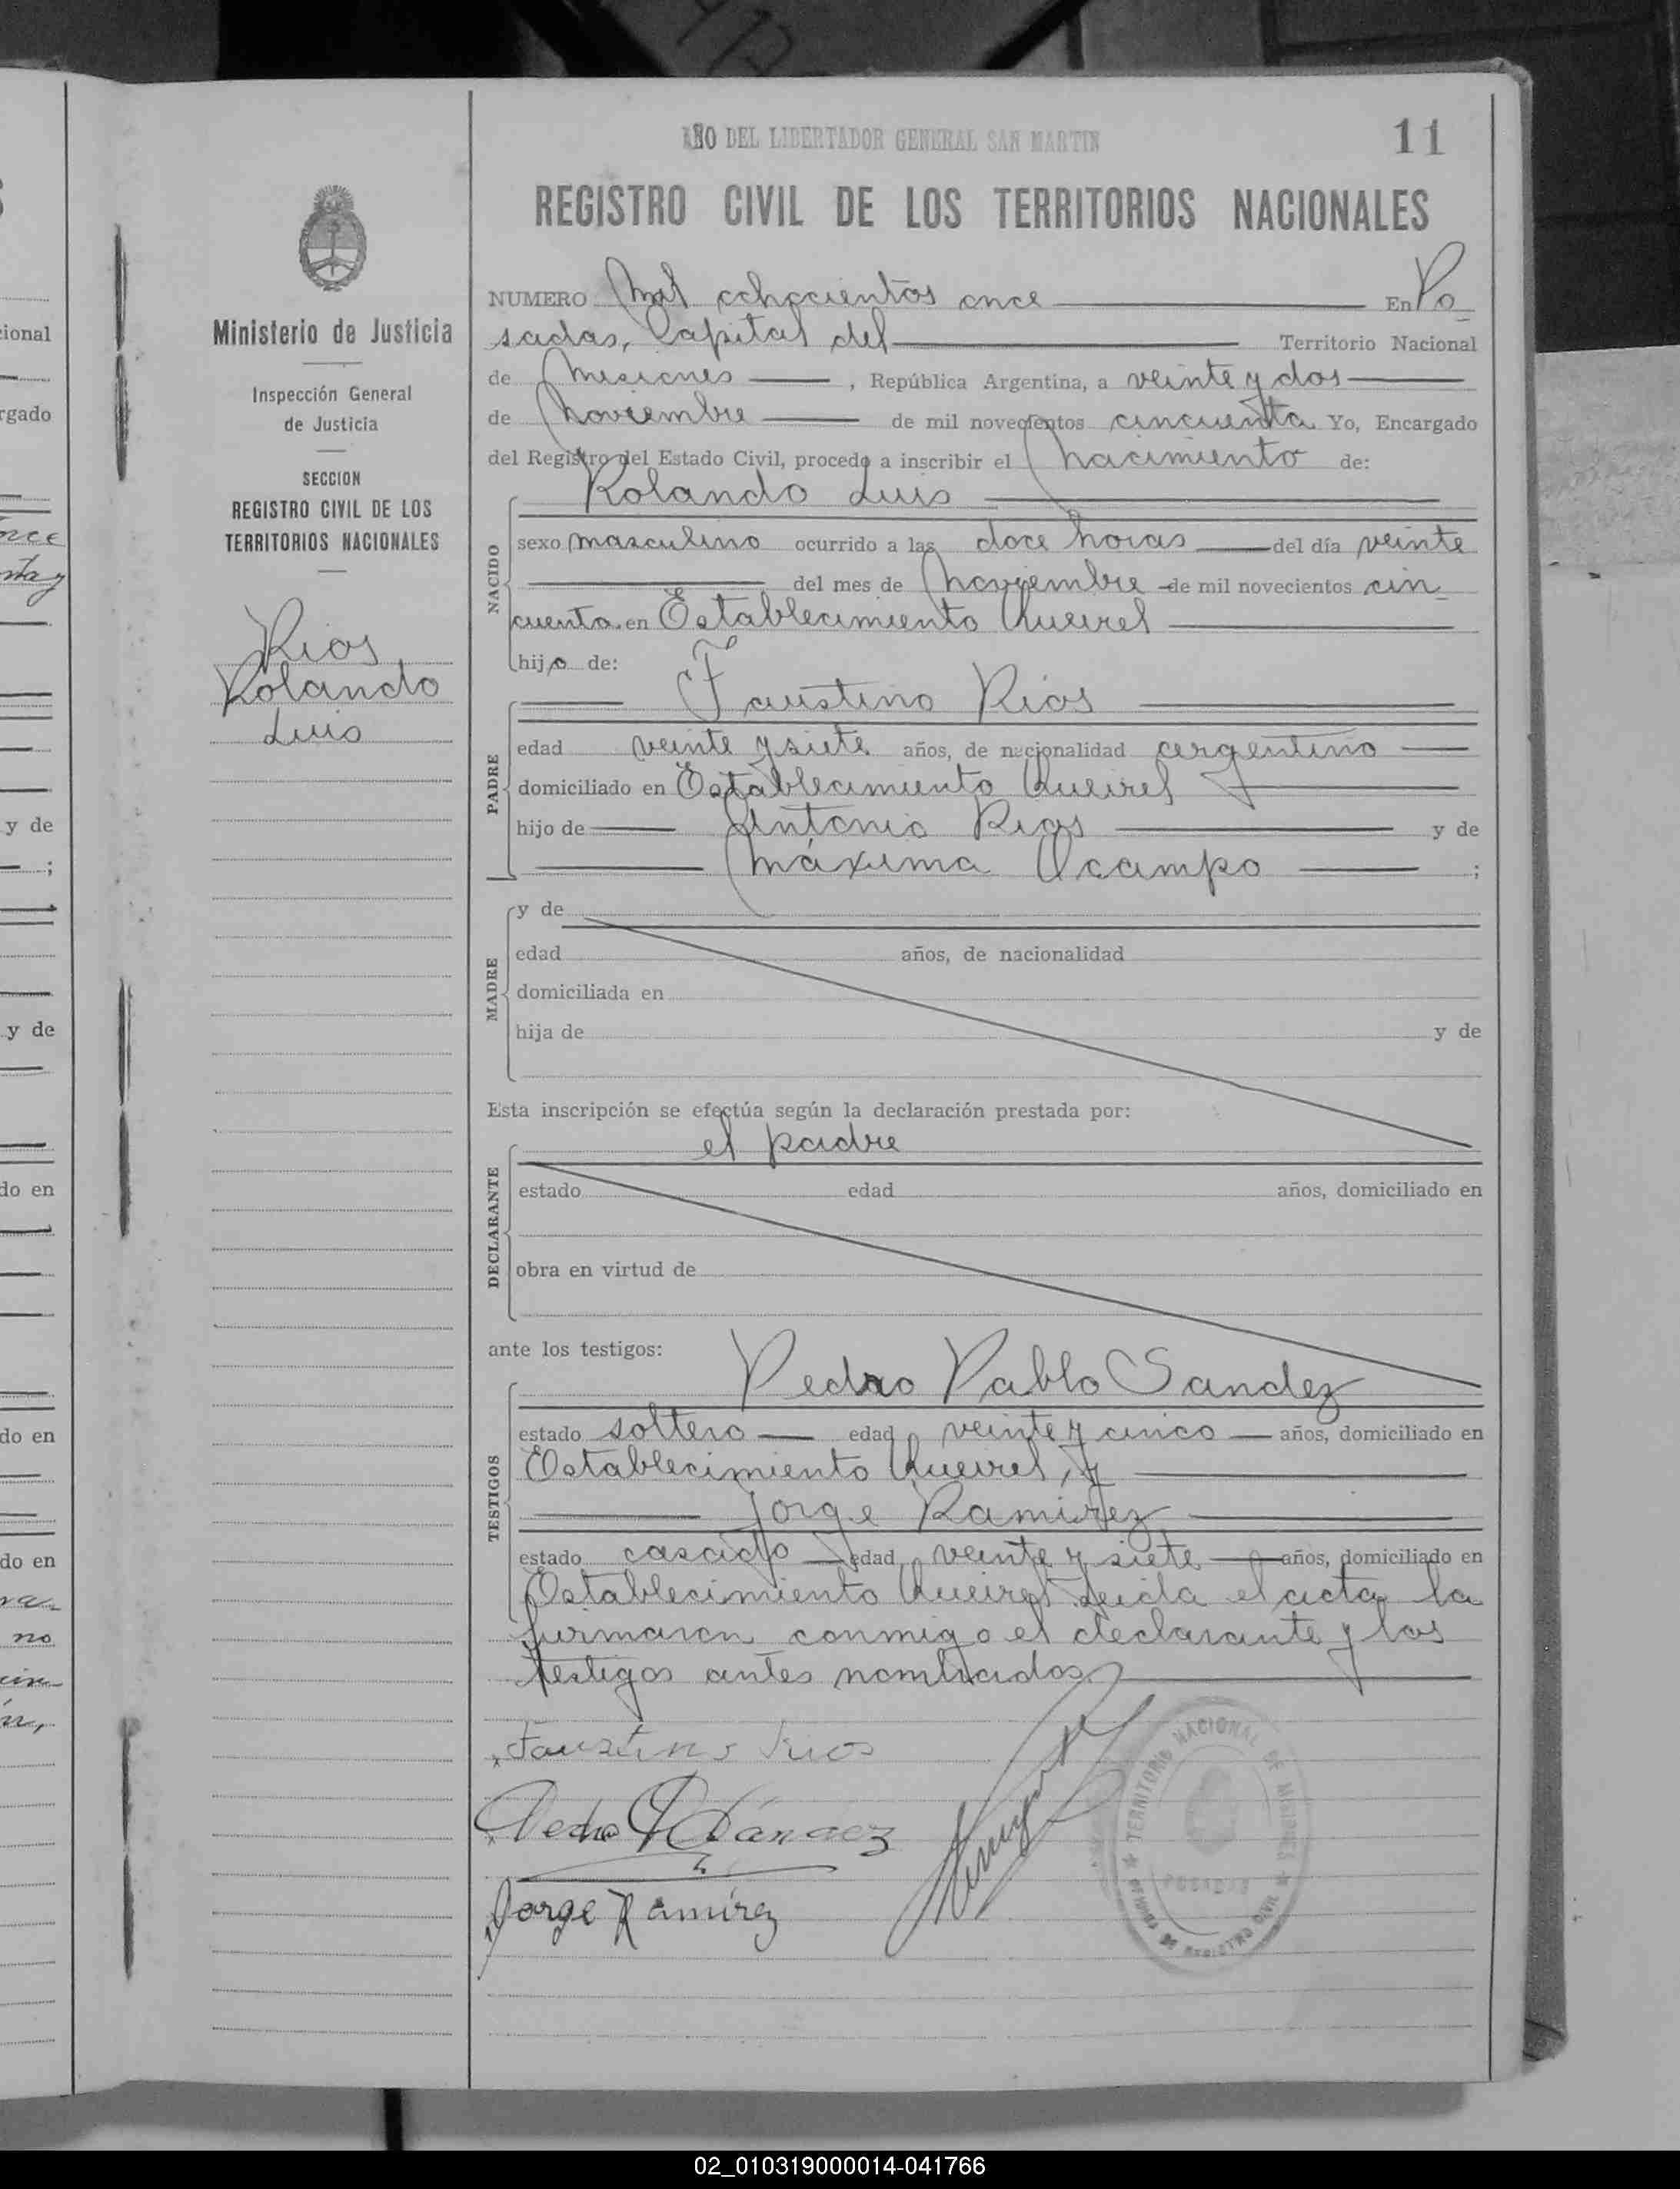 AÑO DEL LIBERTADOR GENERAL SAN MARTIN
11
REGISTRO CIVIL DE LOS TERRITORIOS NACIONALES
Ministerio de Justicia
Inspección General
de Justicia
SECCION
REGISTRO CIVIL DE LOS
TERRITORIOS NACIONALES
Rios
Rolando
Luis
NUMERO Mil ochocientos once En Po
sadas, Capital del Territorio Nacional
de Misiones, República Argentina, a veinte y dos
de Noviembre de mil novecientos cincuenta Yo, Encargado
del Registro del Estado Civil, procedo a inscribir el Nacimiento de:
NACIDO
Rolando Luis
sexo masculino ocurrido a las doce horas del día veinte
del mes de Noviembre de mil novecientos cin
cuenta en Establecimiento Queirel
hijo de:
PADRE
Faustino Rios
edad veinte y siete años, de nacionalidad argentino
domiciliado en Establecimiento Queirel
hijo de Antonio Rios y de
Máxima Ocampo ;
MADRE
y de
edad años, de nacionalidad
domiciliada en
hija de y de
Esta inscripción se efectúa según la declaración prestada por:
DECLARANTE
el padre
estado edad años, domiciliado en
obra en virtud de
ante los testigos:
TESTIGOS
Pedro Pablo Sandez
estado soltero edad veinte y cinco años, domiciliado en
Establecimiento Queirel, y
Jorge Ramirez
estado casado edad veinte y siete años, domiciliado en
Establecimiento Queirel Leida el acta la
firmaron conmigo el declarante y los
testigos antes nombrados
Faustino Rios
Pedro P Sández
Jorge Ramírez
TERRITORIO NACIONAL DE MISIONES
POSADAS
DE REGISTRO CIVIL
cional
rgado
y de
;
y de
do en
do en
do en
no
02_010319000014-041766